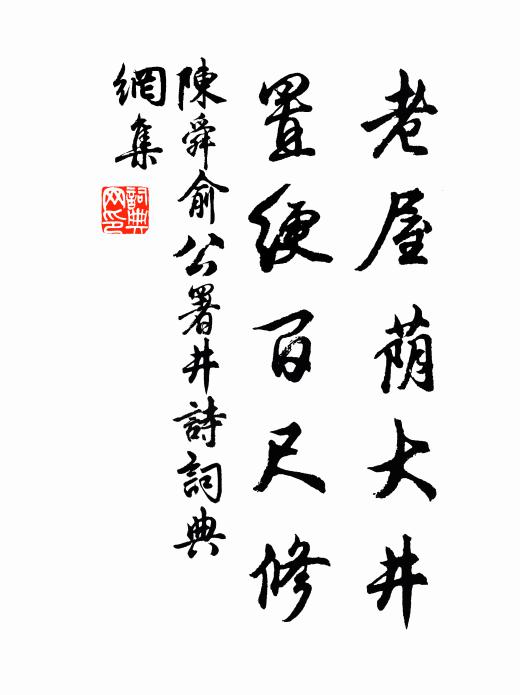 老屋蔭大井
置綆百尺修
陳舜俞公署井詩詞典
網集
詞典网印